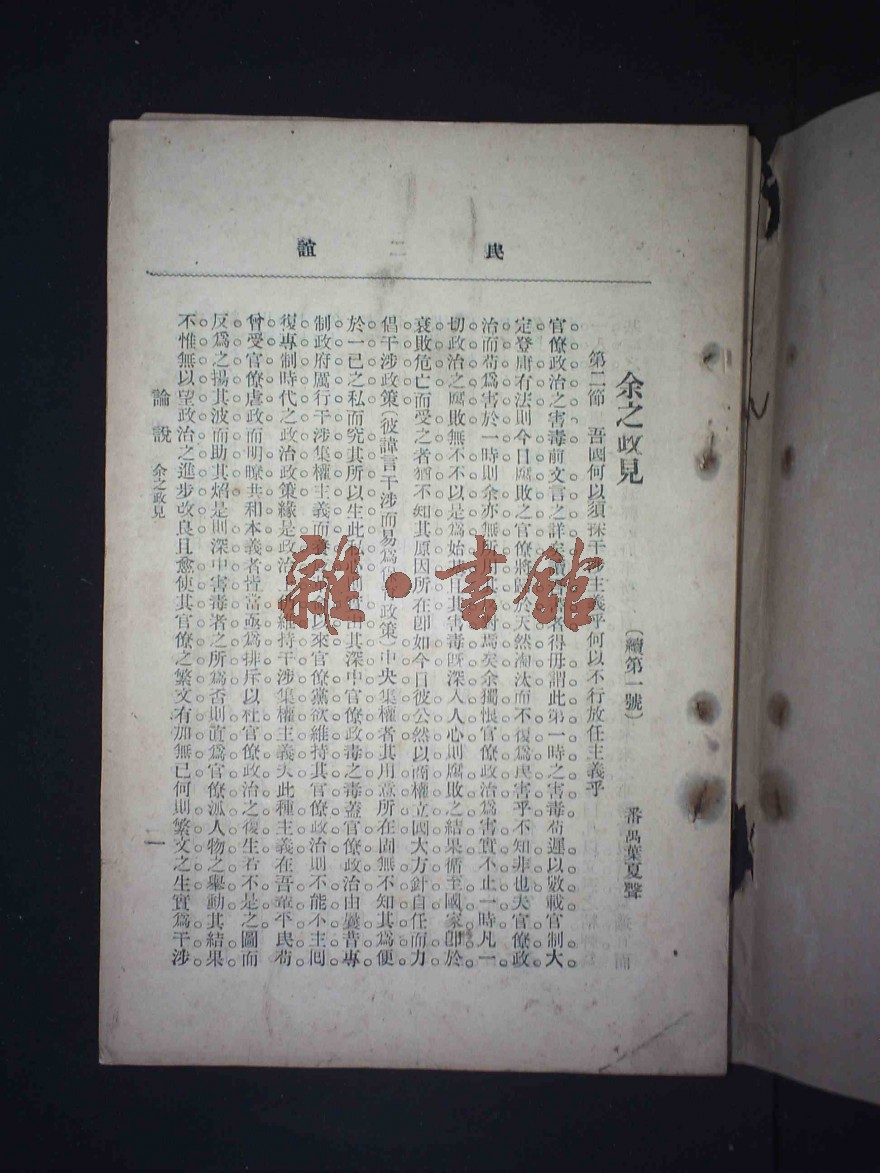 民二誼
余之政見
(續第一號)
番禺葉夏聲
第二節 吾國何以須採干涉主義乎何以不行放任主義乎
官僚政治之害毒前文言之詳矣得毋謂此第一時之害毒苟遲以數載官制大
定登庸有法則今日腐敗之官僚將歸於天然淘汰而不復爲民害乎不知非也夫官僚政
治而苟爲害於一時則余亦無焉矣余獨恨官僚政治爲害實不止一時凡一
切政治之腐敗無不以是爲始且其害毒既深入人心則腐敗之結果循至國家即於
衰敗危亡而受之者猶不知其原因所在即如今日彼公然以商權立國大方針自任而力
倡干涉政策(彼諱言干涉而易爲政策)中央集權者其用意所在固無不知其爲便
於一己之私而究其所以生此私其深中官僚政毒之毒蓋官僚政治由曩昔專
制政府厲行干涉集權主義而以來官僚黨欲維持其官僚政治則不能不主回
復專制時代之政治政策緣是政治維持干涉集權主義夫此種主義在吾輩平民苟
曾受官僚虐政而明瞭共和本義者皆當亟爲排斥以杜官僚政治之復生若不是之圖而
反爲之揚其波而助其焰是則深中害毒者之所爲否則直爲官僚派人物之舉動其結果
不惟無以望政治之進步改良且愈使其官僚之繁文有加無已何則繁文之生實爲干涉
論說 余之政見
二
雜·書館